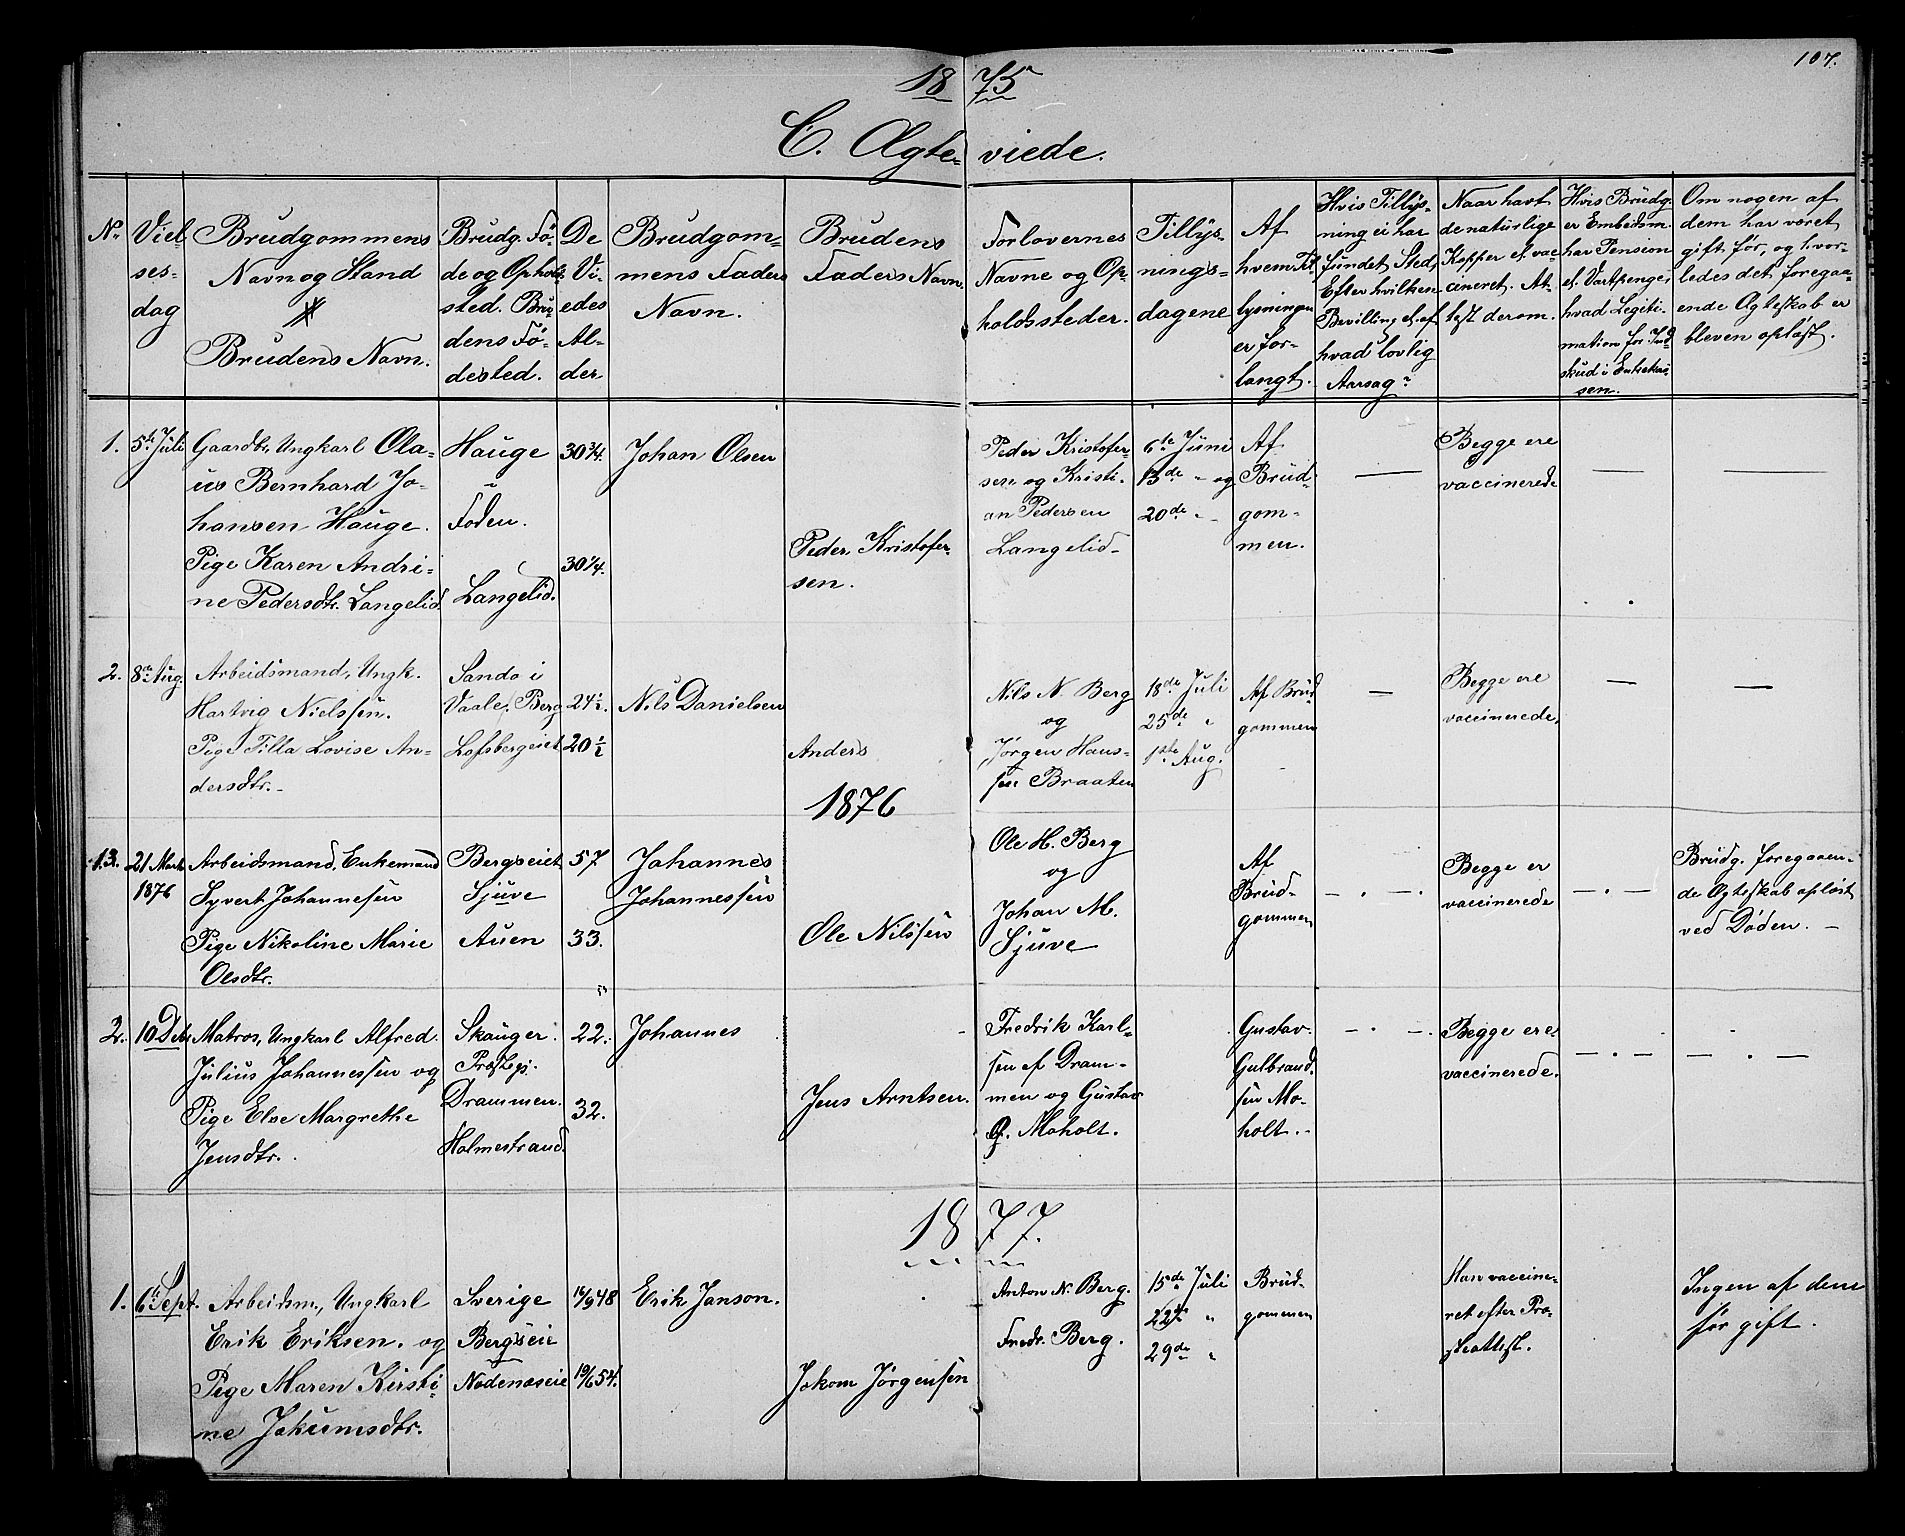 107.
1875
C. Ægteviede.
Nr
Viel
ses-
dag
Brudgommens
Navn og Stand
Brudens Navn.
Brudg. Fø-
de og Opholds
sted. Bru-
dens Fø-
dested.
De
Vi-
edes
Al-
der
Brudgom-
mens Faders
Navn.
Brudens
Faders Navn.
Forlovernes
Navne og Op-
holdssteder.
Tillys-
nings-
dagene
Af
hvem Til-
lysningen
er for-
langt.
Hvis Tillys-
ning ei har
fundet Sted,
Efter hvilken
Bevilling el. af
hvad lovlig
Aarsag?
Naar havt
de naturlige
Kopper el. vac-
cineret. At-
test derom.
Hvis Brudg.
er Embedsm.
har Pension
el. Vartpenge,
hvad Legiti-
mation for Ind
skud i Enkekas
sen.
Om nogen af
dem har været
gift før, og hvor-
ledes det foregaa-
ende Ægteskab er
bleven opløst.
1. 5te Juli
Gaardbr. Ungkarl Ola-
us Bernhard Jo-
hansen Hauge.
Pige Karen Andri-
ne Pedersdtr. Langelid.
Hauge
Foden.
Langelid.
30 3/4.
30 1/4.
Johan Olsen
Peder Kristofer-
sen.
Peder Kristofer-
sen og Kristi-
an Pedersen
Langelid.
6te Juni
13de " og
20de "
Af
Brud-
gom-
men.
Begge ere
vaccinerede
2. 8de Aug.
Arbeidsmand, Ungk.
Hartvig Nielssen.
Pige Tilla Lovise An-
dersdtr.
Sando i
Vaale. Berg
Lofsbergeiet
24 1/2.
20 1/2
Nils Danielsen
Anders
Nils N. Berg
og
Jørgen Hans-
sen Braaten
18de Juli
25de "
1ste Aug.
Af Brud
gommen
Begge ere
vaccinerede.
1876
1. 21 Marts
1876
Arbeidsmand, Enkemand
Syvert Johannesen
Pige Nikoline Marie
Olsdtr.
Bergseiet
Sjuve
Auen
57
33.
Johannes
Johannessen
Ole Nilssen
Ole H. Berg
og
Johan M.
Sjuve
Af
Brud-
gommen
Begge er
vaccinerede
Brudg. foregaaen-
de Ægteskab opløst
ved Døden.
2. 10 Deb.
Matros, Ungkarl Alfred
Julius Johannessen og
Pige Else Margrethe
Jensdtr.
Skauger
Præstegj.
Drammen.
Holmestrand.
22.
32.
Johannes
Jens Arntsen.
Fredrik Karl-
sen af Dram-
men og Gustav
G. Moholt.
Gustav
Gulbrand
sen Mo-
holt.
Begge ere
vaccinerede.
1877.
1. 6te Sept.
Arbeidsm., Ungkarl
Erik Eriksen. og
Pige Maren Kirsti-
ne Jakumsdtr.
Sverige
Bergseie
Nødenæseie
16/9 48
19/6 54.
Erik Janson.
Jokom Jørgensen
Anton N. Berg.
Fredr. Berg.
15de Juli
22de "
29de "
Brud-
gommen
Han vaccine-
ret efter Præ-
steattest.
Ingen af dem
før gift.